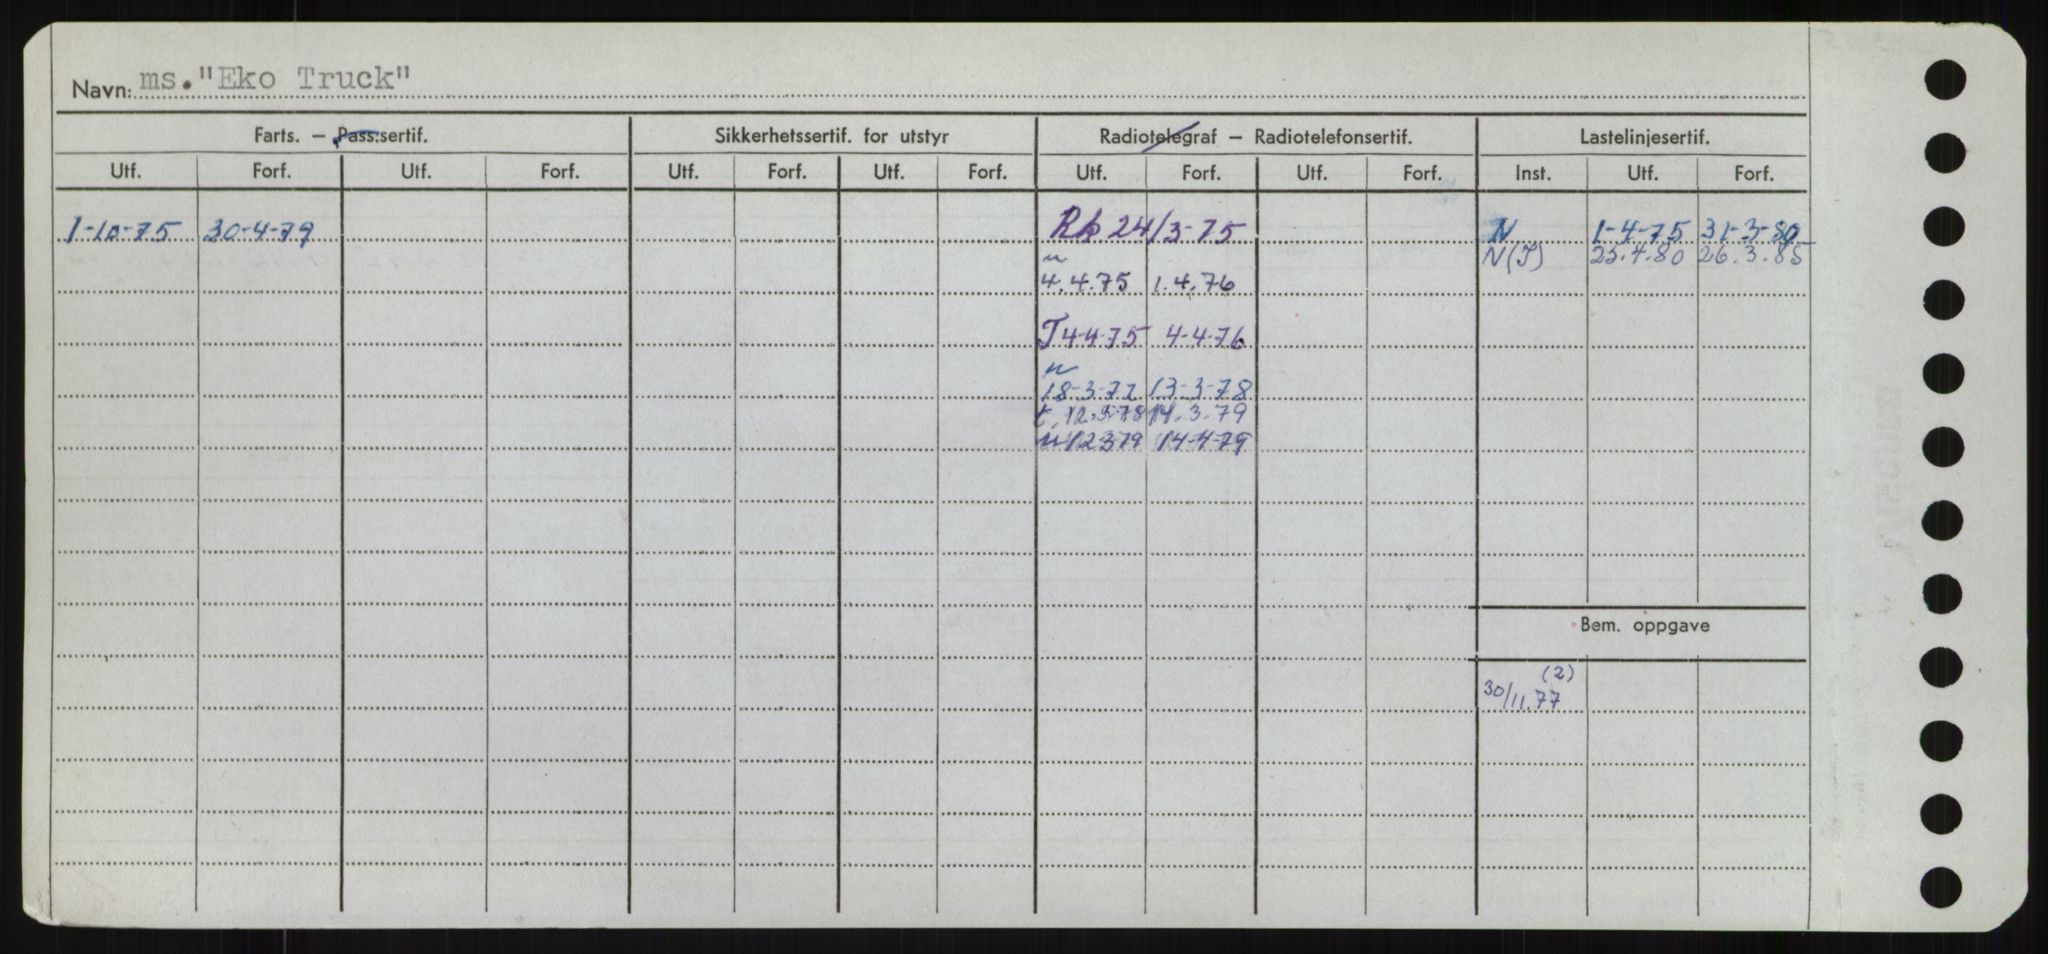 Navn: ms."Eko Truck"
Farts. — Pass.sertif. Sikkerhetssertif. for utstyr Radiotelegraf — Radiotelefonsertif. Lastelinjesertif.
Utf. Forf. Utf. Forf. Utf. Forf. Utf. Forf. Utf. Forf. Utf. Forf. Inst. Utf. Forf.
1-10-75 30-4-79 Rk 24/3-75 N 1-4-75 31-3-80
N(T) 25.4.80 26.3.85
4.4.75 1.4.76
T 4-4-75 4-4-76
n
18-3-77 13-3-78
t. 12.3.78 14.3.79
n 12379 14-4-79
Bem. oppgave
(2)
30/11.77